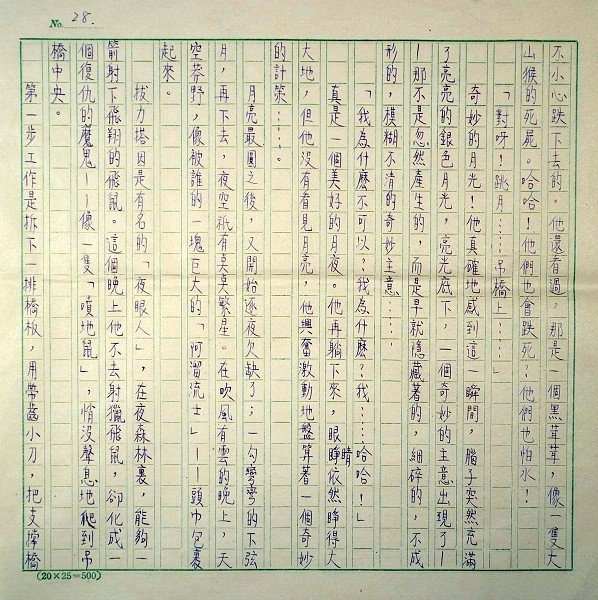 No. 28.
不小心跌下去的。他還看過,那是一個黑茸茸,像一隻大
山猴的死屍。哈哈!他們也會跌死?他們也怕水!
「對呀!跳月……吊橋上……」
奇妙的月光!他真確地感到這一瞬間,腦子突然充滿
了亮亮的銀色月光,亮光底下,一個奇妙的主意出現了—
—那不是忽然產生的,而是早就隱藏著的,細碎的,不成
形的,模糊不清的奇妙主意……
「我為什麼不可以?我為什麼?我……哈哈!」
真是一個美好的月夜。他再躺下來,眼睛依然睜得大
大地,但他沒有看見月亮,他興奮激動地盤算著一個奇妙
的計策……。
月亮最圓之後,又開始逐夜欠缺了;一勾彎彎的下弦
月,再下去,夜空祇有莫莫繁星。在吹風有雲的晚上,天
空莽野,像被誰的一塊巨大的「阿溜流士」——頭巾包裹
起來。
拔力塔因是有名的「夜眼人」,在夜森林裏,能夠一
箭射下飛翔的飛鼠。這個晚上他不去射獵飛鼠,卻化成一
個復仇的魔鬼——像一隻「噴地鼠」,悄沒聲息地爬到吊
橋中央。
第一步工作是拆下一排橋板,用帶齒小刀,把支撐橋
(20×25=500)